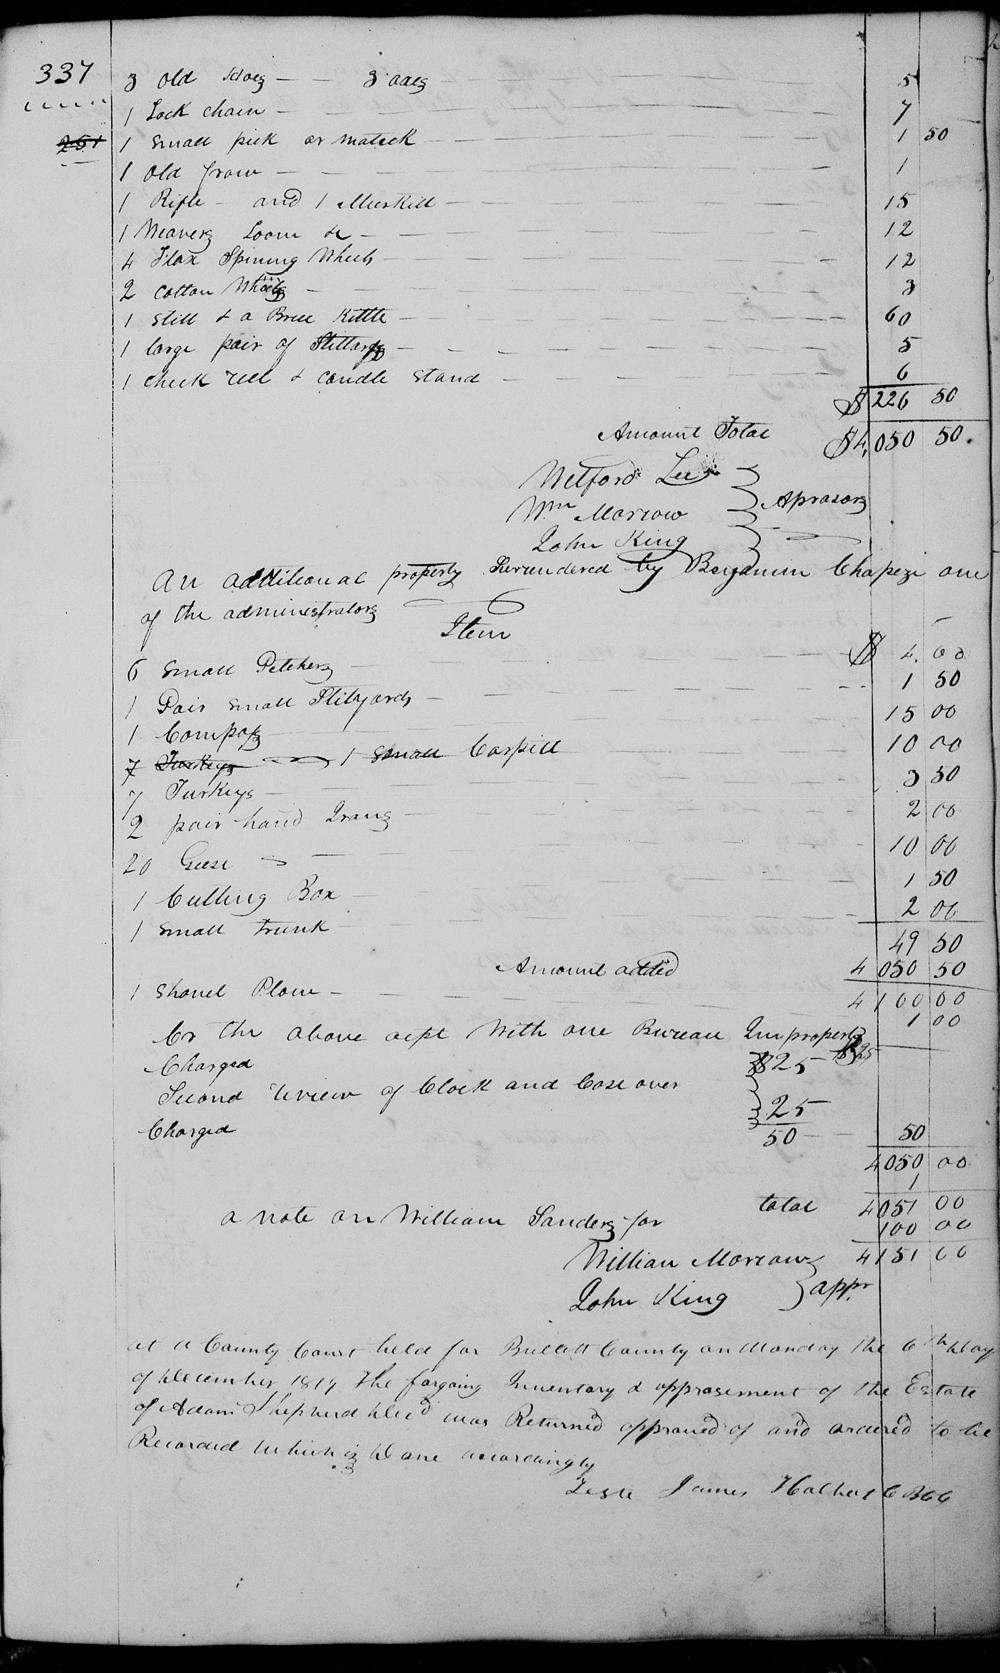 337
3 old Hoes 3 axes 5
1 Lock chain 7
251
1 Small pick or matock 1 50
1 old frow 1
1 Rifle and 1 Muskitt 15
1 Weavers Loom &c 12
4 Flax Spining Wheels 12
2 Cotton Wheels 3
1 Still & a Brew Kittle 60
1 large pair of Stillards 5
1 check reel & candle Stand 6
$ 226 50
Amount Total $4,050 50.
Welford Lee
Wm Morrow } Aprasors
John King
An additional property Surendered by Benjamin Chapeze one
of the administrators
Item
6 Small Pitchers $ 4.00
1 Pair Small Stilyards 1 50
1 Compass 15 00
7 Turkeys 1 Small Carpitt 10 00
7 Turkeys 3 50
2 pair hand Irans 2 00
20 Geese 10 00
1 Cutting Box 1 50
1 Small trunk 2 00
49 50
Amount added 4 050 50
1 Shovel Plow 4 100 00
1 00
Cr the above acpt With one Bureau Improperly $25
Charged $25
Second review of Clock and Case over
Charged 25
50 50
4050 00
1
total 4051 00
a note on William Sanders for 100 00
William Morrow 4151 00
John King } appr
at a County Court held for Bullitt County on Monday the 6th day
of December 1819 The forgoing Inventory & apprasement of the Estate
of Adam Shepherd decd was Returned approued of and ordered to be
Recorded which is done accordingly
Teste James Halbert C B C C